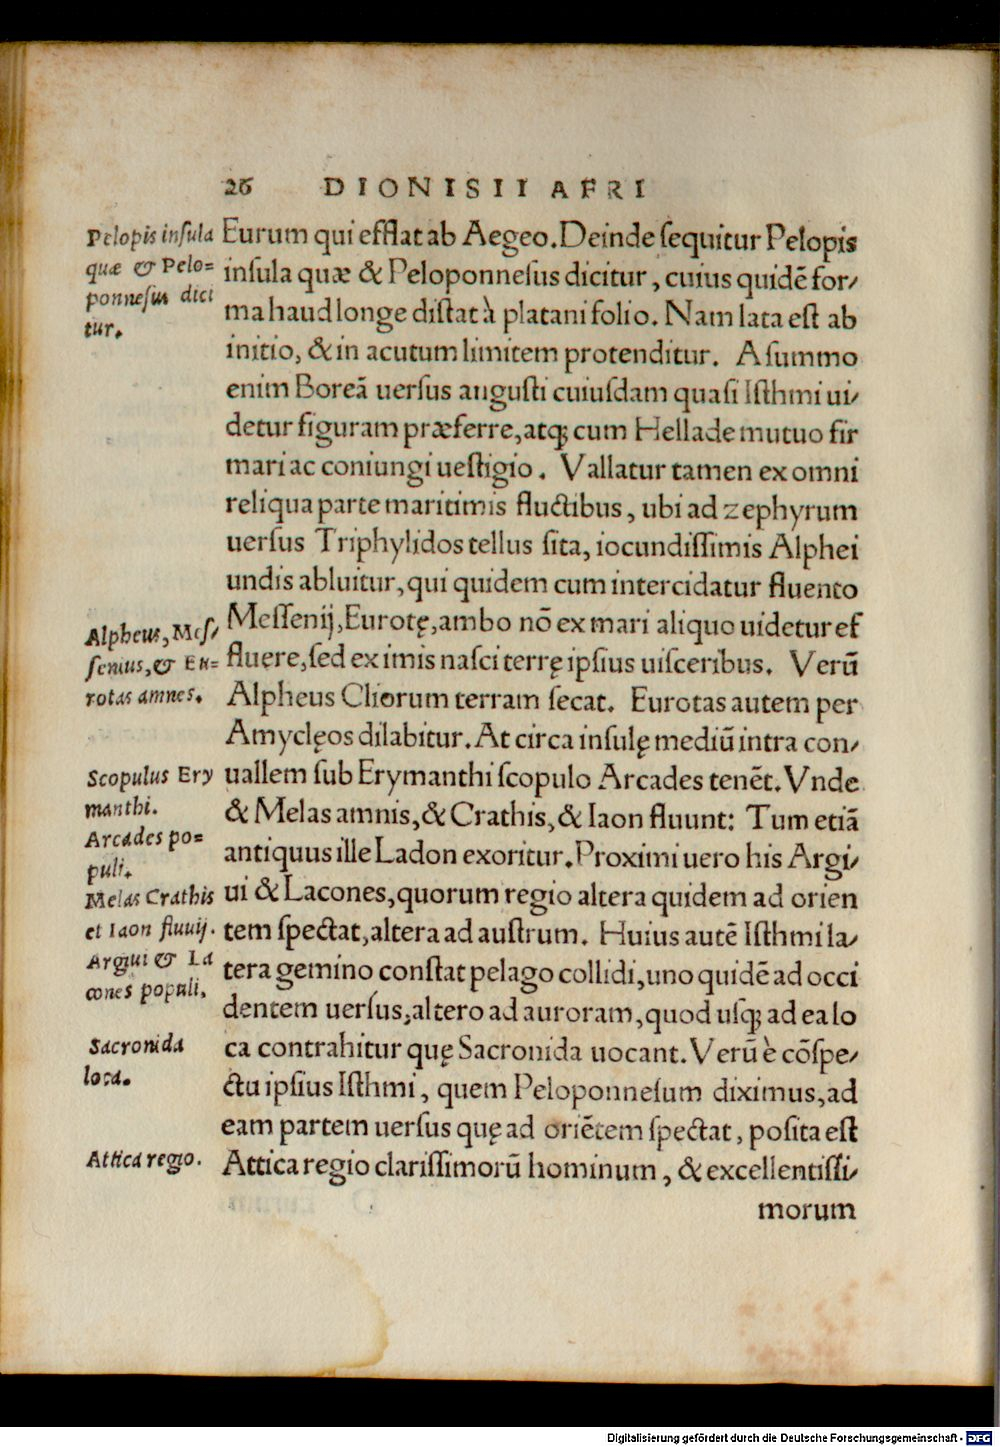 26 DIONISII AFRI
Pelopis inſula
quæ & Pelo=
ponneſus dici
tur.
Eurum qui efflat ab Aegeo. Deinde ſequitur Pelopis
inſula quæ & Peloponneſus dicitur, cuius quidē for/
ma haud longe diſtat à platani folio. Nam lata eſt ab
initio, & in acutum limitem protenditur. A ſummo
enim Boreā uerſus anguſti cuiuſdam quaſi Iſthmi ui/
detur figuram præferre, atq; cum Hellade mutuo fir
mari ac coniungi ueſtigio. Vallatur tamen ex omni
reliqua parte maritimis fluctibus, ubi ad zephyrum
uerſus Triphylidos tellus ſita, iocundiſſimis Alphei
undis abluitur, qui quidem cum intercidatur fluento
Alpheus, Meſ/
ſenius, & Eu=
rotas amnes.
Meſſenij, Eurotę, ambo nō ex mari aliquo uidetur ef
fluere, ſed ex imis naſci terrę ipſius uiſceribus. Verū
Alpheus Cliorum terram ſecat. Eurotas autem per
Amyclęos dilabitur. At circa inſulę mediū intra con/
Scopulus Ery
manthi.
Arcades po=
puli.
Melas Crathis
et Iaon fluuij.
Argiui & La
cones populi.
uallem ſub Erymanthi ſcopulo Arcades tenēt. Vnde
& Melas amnis, & Crathis, & Iaon fluunt: Tum etiā
antiquus ille Ladon exoritur. Proximi uero his Argi/
ui & Lacones, quorum regio altera quidem ad orien
tem ſpectat, altera ad auſtrum. Huius autē Iſthmi la/
tera gemino conſtat pelago collidi, uno quidē ad occi
dentem uerſus, altero ad auroram, quod uſq; ad ea lo
Sacronida
loca.
ca contrahitur quę Sacronida uocant. Verū è cōſpe/
ctu ipſius Iſthmi, quem Peloponneſum diximus, ad
eam partem uerſus quę ad oriētem ſpectat, poſita eſt
Attica regio.
Attica regio clariſſimorū hominum, & excellentiſſi/
morum
Digitalisierung gefördert durch die Deutsche Forschungsgemeinschaft - DFG